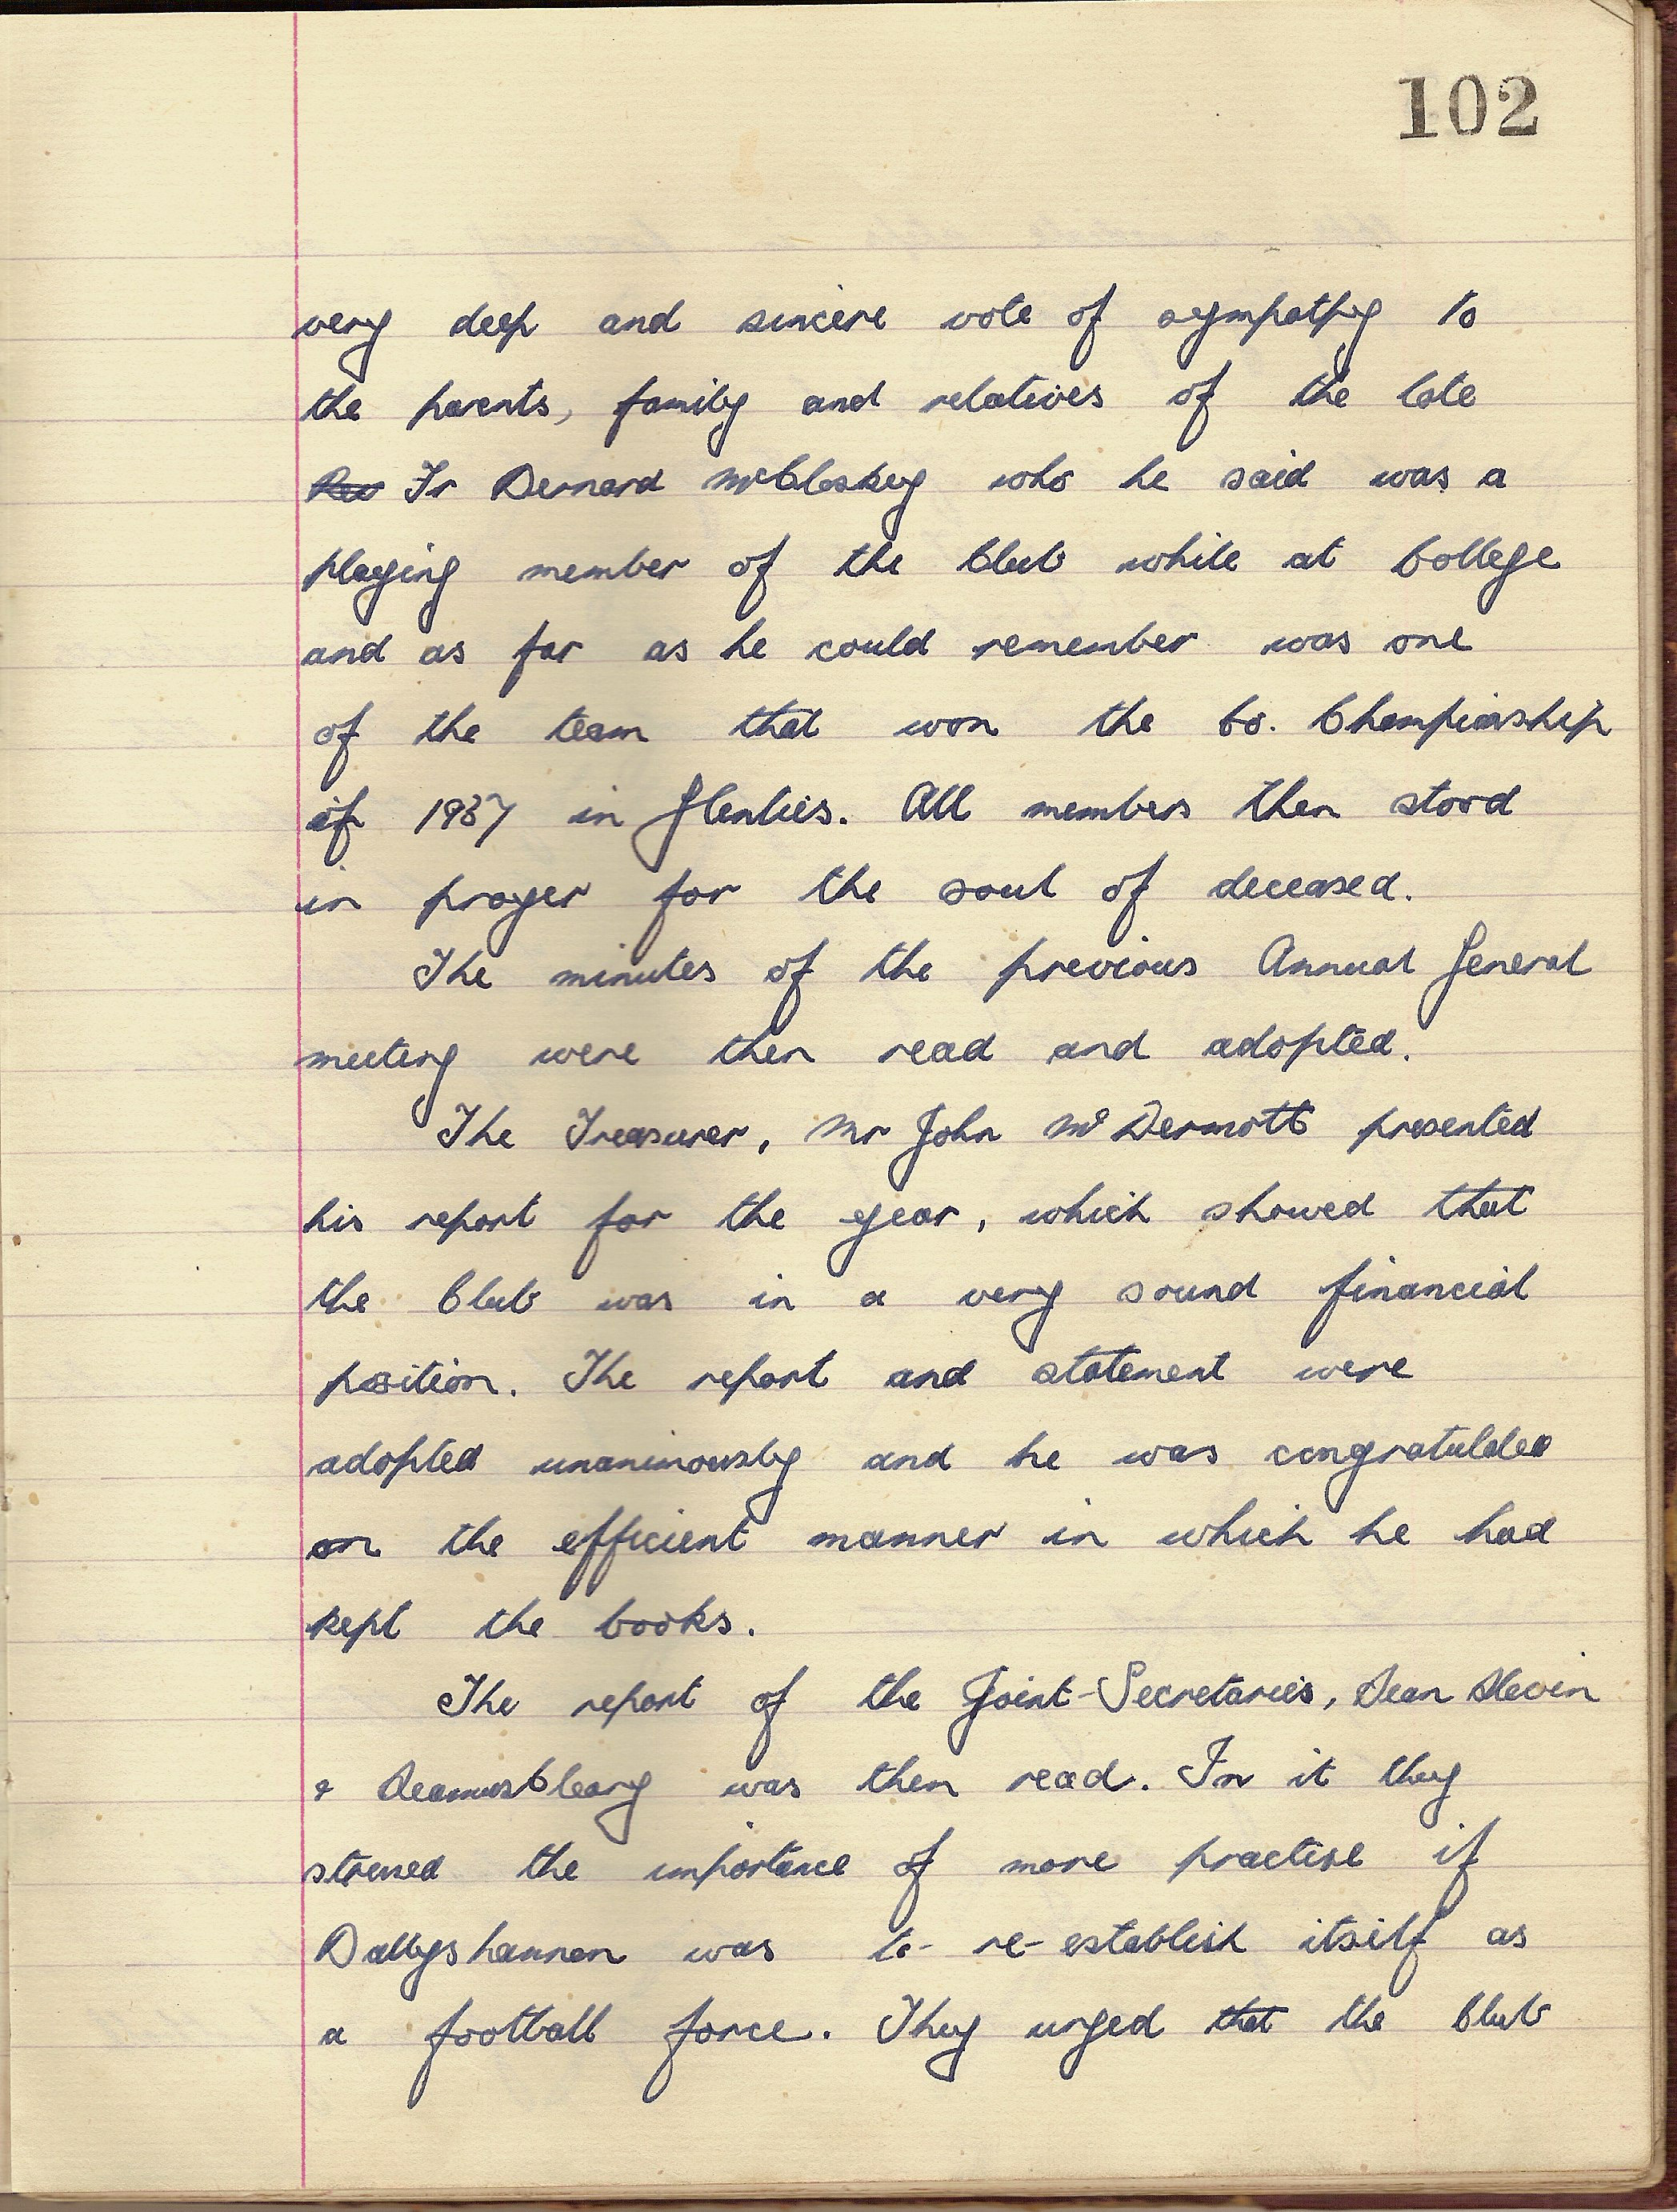 102
very deep and sincere vote of sympathy to
the parents, family and relatives of the late
Rev Fr Bernard McCloskey who he said was a
playing member of the Club while at College
and as far as he could remember was one
of the team that won the Co. Championship
of 1937 in Glenties. All members then stood
in prayer for the soul of deceased.
The minutes of the previous Annual General
meeting were then read and adopted.
The Treasurer, Mr John McDermott presented
his report for the year, which showed that
the Club was in a very sound financial
position. The report and statement were
adopted unanimously and he was congratulated
on the efficient manner in which he had
kept the books.
The report of the Joint-Secretaries, Sean Slevin
& Seamus Cleary was then read. In it they
stressed the importance of more practise if
Ballyshannon was to re-establish itself as
a football force. They urged that the Club